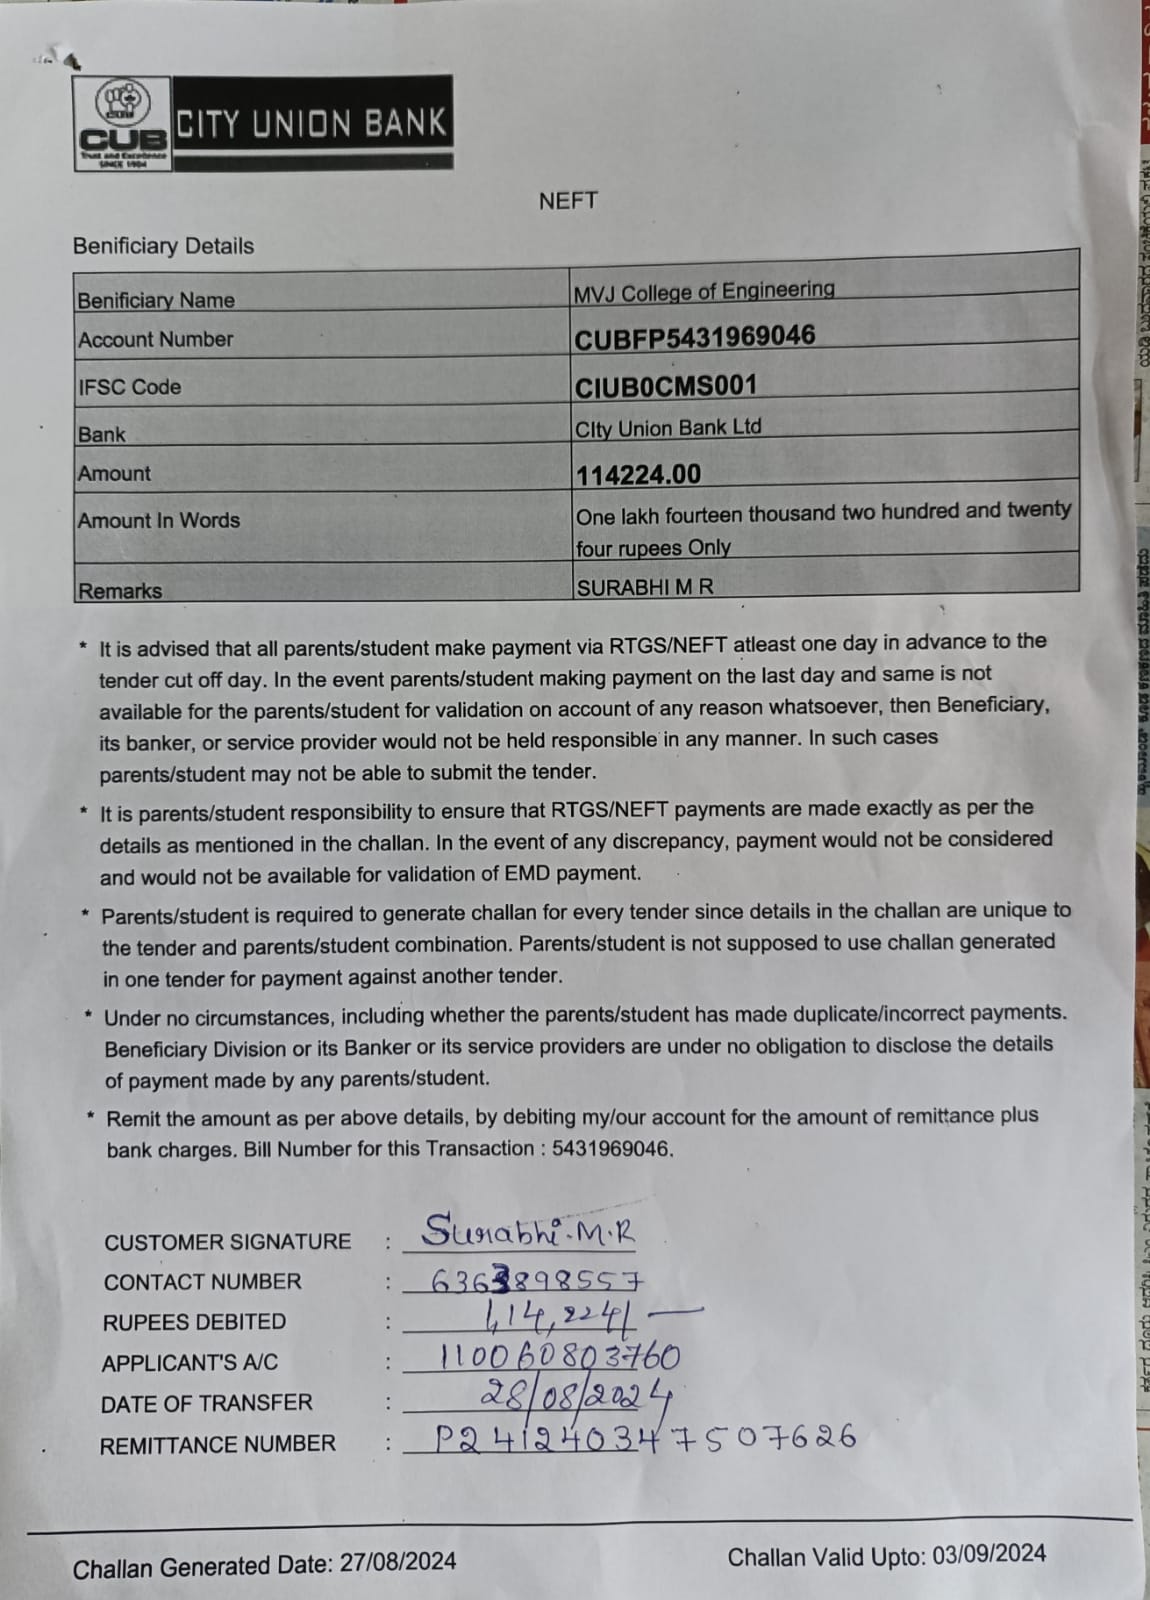 CUB
Trust and Excellence
SINCE 1904
CITY UNION BANK
NEFT
Benificiary Details
Benificiary Name MVJ College of Engineering
Account Number CUBFP5431969046
IFSC Code CIUB0CMS001
Bank CIty Union Bank Ltd
Amount 114224.00
Amount In Words One lakh fourteen thousand two hundred and twenty
four rupees Only
Remarks SURABHI M R
* It is advised that all parents/student make payment via RTGS/NEFT atleast one day in advance to the
tender cut off day. In the event parents/student making payment on the last day and same is not
available for the parents/student for validation on account of any reason whatsoever, then Beneficiary,
its banker, or service provider would not be held responsible in any manner. In such cases
parents/student may not be able to submit the tender.
* It is parents/student responsibility to ensure that RTGS/NEFT payments are made exactly as per the
details as mentioned in the challan. In the event of any discrepancy, payment would not be considered
and would not be available for validation of EMD payment.
* Parents/student is required to generate challan for every tender since details in the challan are unique to
the tender and parents/student combination. Parents/student is not supposed to use challan generated
in one tender for payment against another tender.
* Under no circumstances, including whether the parents/student has made duplicate/incorrect payments.
Beneficiary Division or its Banker or its service providers are under no obligation to disclose the details
of payment made by any parents/student.
* Remit the amount as per above details, by debiting my/our account for the amount of remittance plus
bank charges. Bill Number for this Transaction : 5431969046.
CUSTOMER SIGNATURE : Surabhi.M.R
CONTACT NUMBER : 6363898557
RUPEES DEBITED : 1,14,224/-
APPLICANT'S A/C : 110060803760
DATE OF TRANSFER : 28/08/2024
REMITTANCE NUMBER : P241240347507626
Challan Generated Date: 27/08/2024 Challan Valid Upto: 03/09/2024